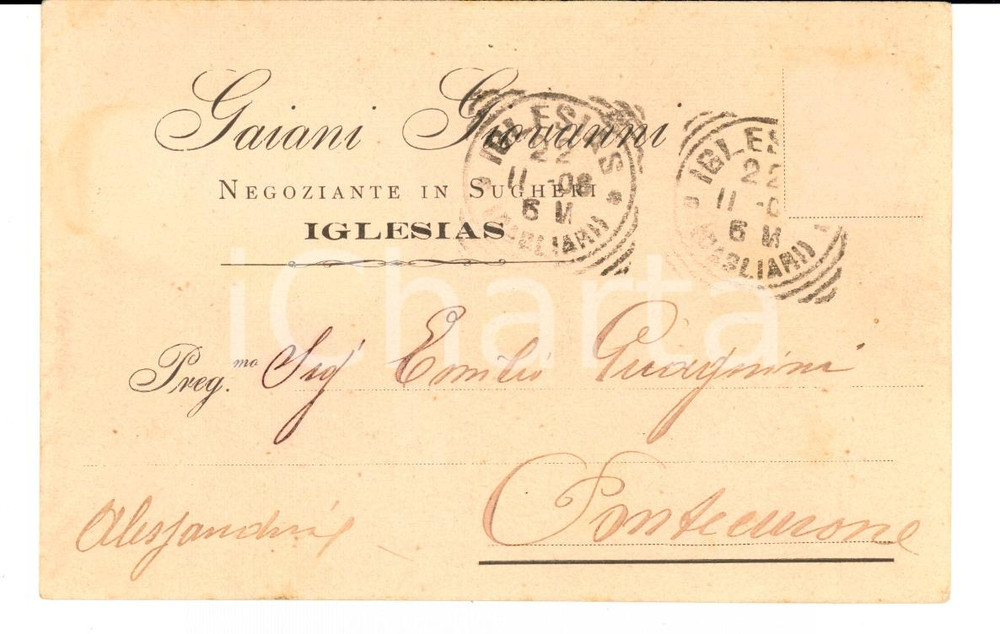 Gaiani Giovanni
NEGOZIANTE IN SUGHERI
IGLESIAS
IGLESIAS
22
11 -08
6 M
(CAGLIARI)
IGLES
22
11 -0
6 M
(CAGLIARI)
iCharta
Preg.mo Sig Emilio Guagnini
Pontecurone
Alessandria